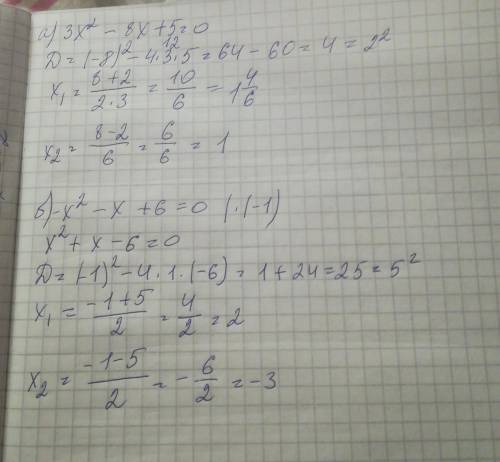 а) 3x² - 8x + 5 = 0
D = (-8)² - 4·3·5 = 64 - 60 = 4 = 2²
12
x₁ = (8+2)/(2·3) = 10/6 = 1 4/6
x₂ = (8-2)/6 = 6/6 = 1
б) -x² - x + 6 = 0 | ·(-1)
x² + x - 6 = 0
D = (-1)² - 4·1·(-6) = 1 + 24 = 25 = 5²
x₁ = (-1+5)/2 = 4/2 = 2
x₂ = (-1-5)/2 = -6/2 = -3